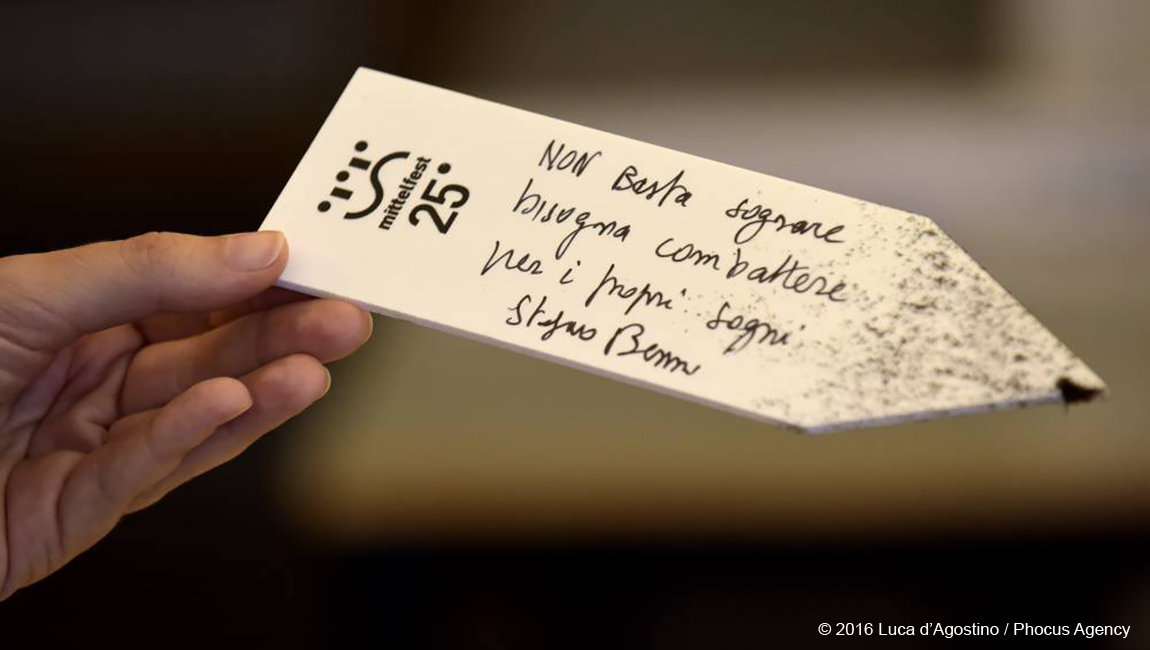 mittelfest
25°
NON Basta sognare
bisogna combattere
per i propri sogni
Stefano Benni
© 2016 Luca d'Agostino / Phocus Agency